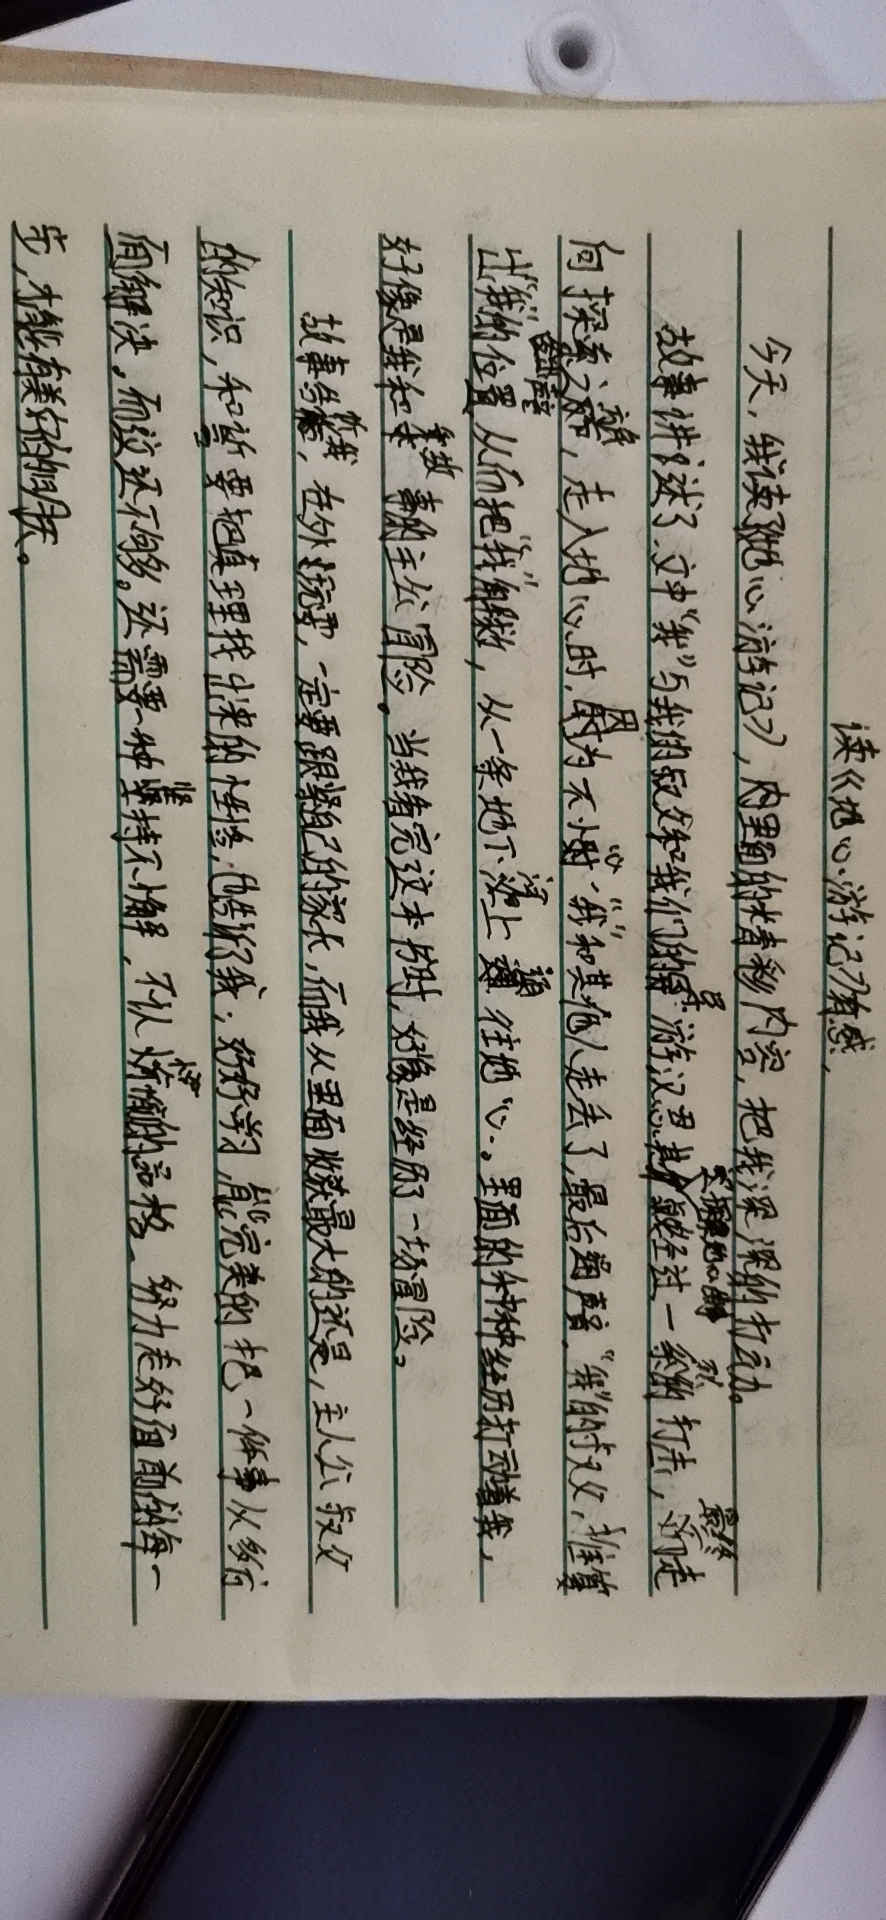 读《地心游记》有感
今天，我读了《地心游记》，内里面的精彩内容，把我深深的打动。
故事讲述了文中“我”与我的叔父和我们的 游汉恩其 经过一系列的打击，最终走
向探索之路，走入地心时，因为不小心“我”和其他人走丢了，最后通声，“我”的叔父，推算
出“我”的位置从而把“我”解救，从一条地下河上通往地心。里面的种种经历打动着我，
好像是我和 故事的主公冒险。当我看完这本书时，好像是经历了一场冒险。
故事告诉我，在外玩耍，一定要跟紧自己的家长，而我从里面收获最大的还是，主人公叔父
的知识，和 要把真理找出来的性格，也告诉了我：好好学习，能完美的把一件事从多方
面解决。而这还不够。还需要一种坚持不懈，不认 惰的品格，努力走好面前的每一
步，才能有美好的明天。